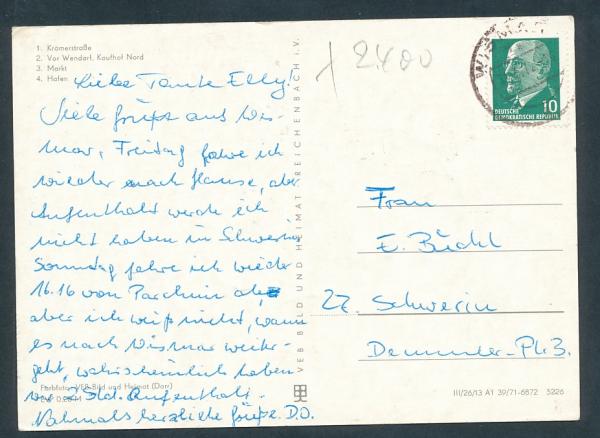 1. Krämerstraße
2. Vor Wendorf, Kaufhof Nord
3. Markt
4. Hafen
Liebe Tante Elly!
Viele Grüße aus Wis-
mar, Freitag fahre ich
wieder nach Hause, aber
Aufenthalt werde ich
nicht haben in Schwerin
Sonntag fahre ich wieder
16.16 von Parchim ab,
aber ich weiß nicht, wann
es nach Wismar weiter-
geht, wahrscheinlich haben
wir Std. Aufenthalt.
Nochmals herzliche Grüße D.O.
Farbfoto: VEB Bild und Heimat (Darr)
0,20 M
VEB BILD UND HEIMAT REICHENBACH i.V.
2400
WISMAR
10
DEUTSCHE
DEMOKRATISCHE REPUBLIK
Frau
E.
27. Schwerin
Demmler-Pl. 3.
III/26/13 A1 39/71-6872 5226